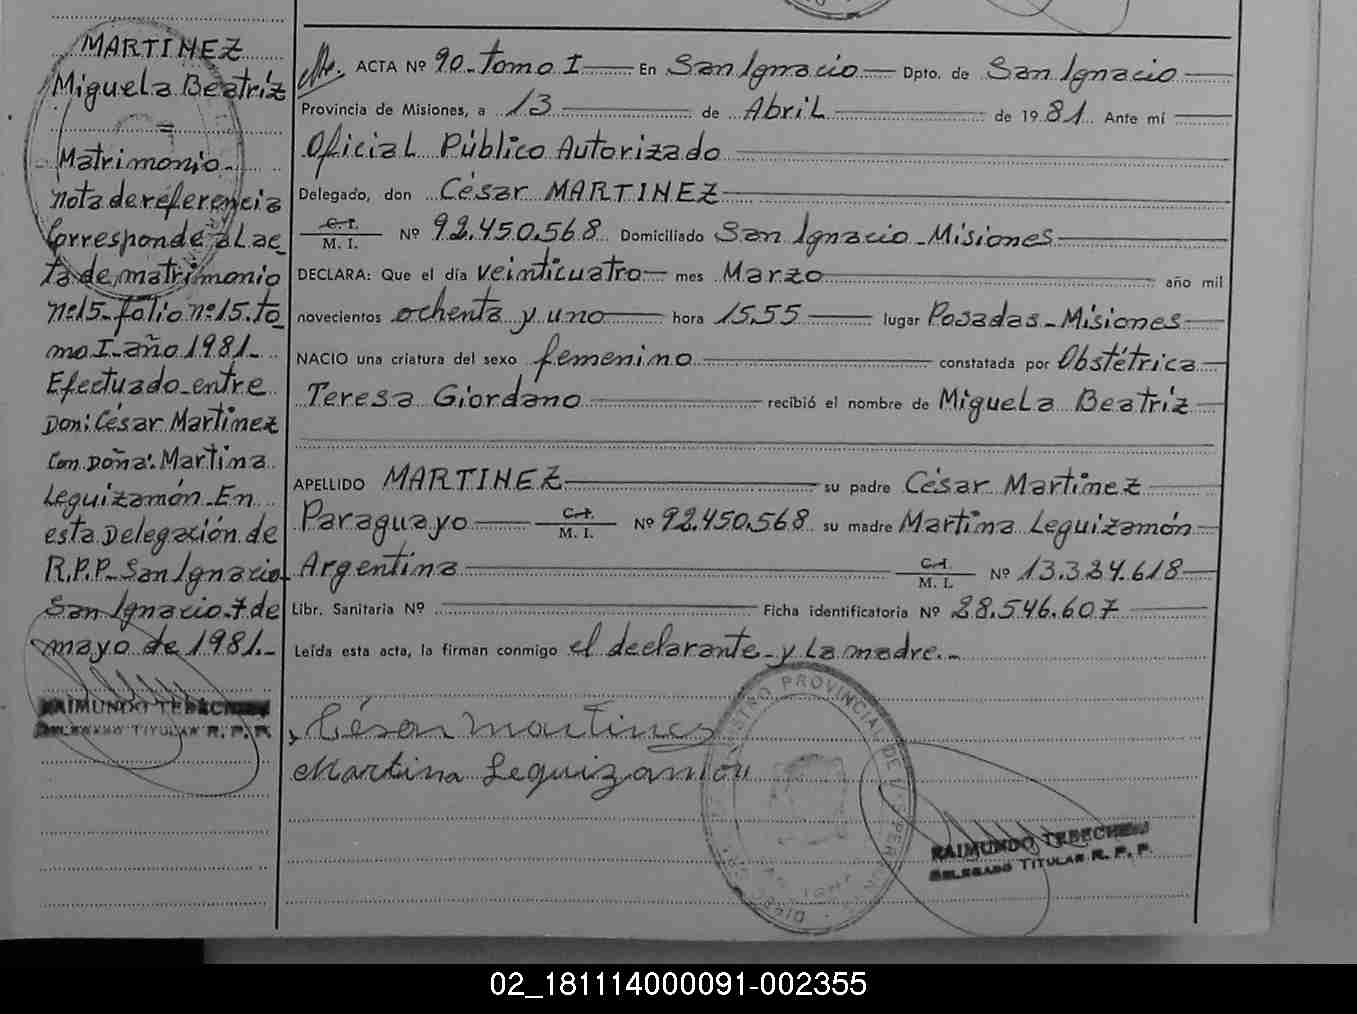 MARTINEZ
Miguela Beatríz
Matrimonio.
nota de referencia
Corresponde al ac_
ta de matrimonio
nº15-folio nº15. to_
mo I-año 1981-.
Efectuado entre
Don: César Martinez
Con Doña: Martina
Leguizamón. En
esta Delegación de
R.P.P. San Ignacio_
San Ignacio. 7 de
mayo de 1981.-
RAIMUNDO TEBECHERI
DELEGADO TITULAR R. P. P.
ACTA Nº 90. tomo I En San Ignacio Dpto. de San Ignacio
Provincia de Misiones, a 13 de Abril de 1981 Ante mí
Oficial Público Autorizado
Delegado, don César MARTINEZ
C. I.
M. I. Nº 92.450.568 Domiciliado San Ignacio - Misiones
DECLARA: Que el día veinticuatro mes Marzo año mil
novecientos ochenta y uno hora 15.55 lugar Posadas - Misiones
NACIO una criatura del sexo femenino constatada por Obstétrica
Teresa Giordano recibió el nombre de Miguela Beatríz
APELLIDO MARTINEZ su padre César Martinez
Paraguayo C. I. M. I. Nº 92.450.568 su madre Martina Leguizamón
Argentina C. I. M. I. Nº 13.334.618
Libr. Sanitaria Nº Ficha identificatoria Nº 28.546.607
Leída esta acta, la firman conmigo el declarante y la madre.-
César Martines
Martina Leguizamon
REGISTRO PROVINCIAL DE LAS PERSONAS
RAIMUNDO TEBECHERI
DELEGADO TITULAR R. P. P.
02_181114000091-002355